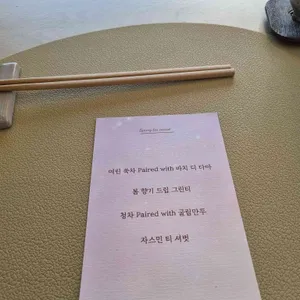 여린 쑥차 Paired with 바치 디 다마
봄 향기 드립 그린티
청차 Paired with 굴림만두
자스민 티 셔벗